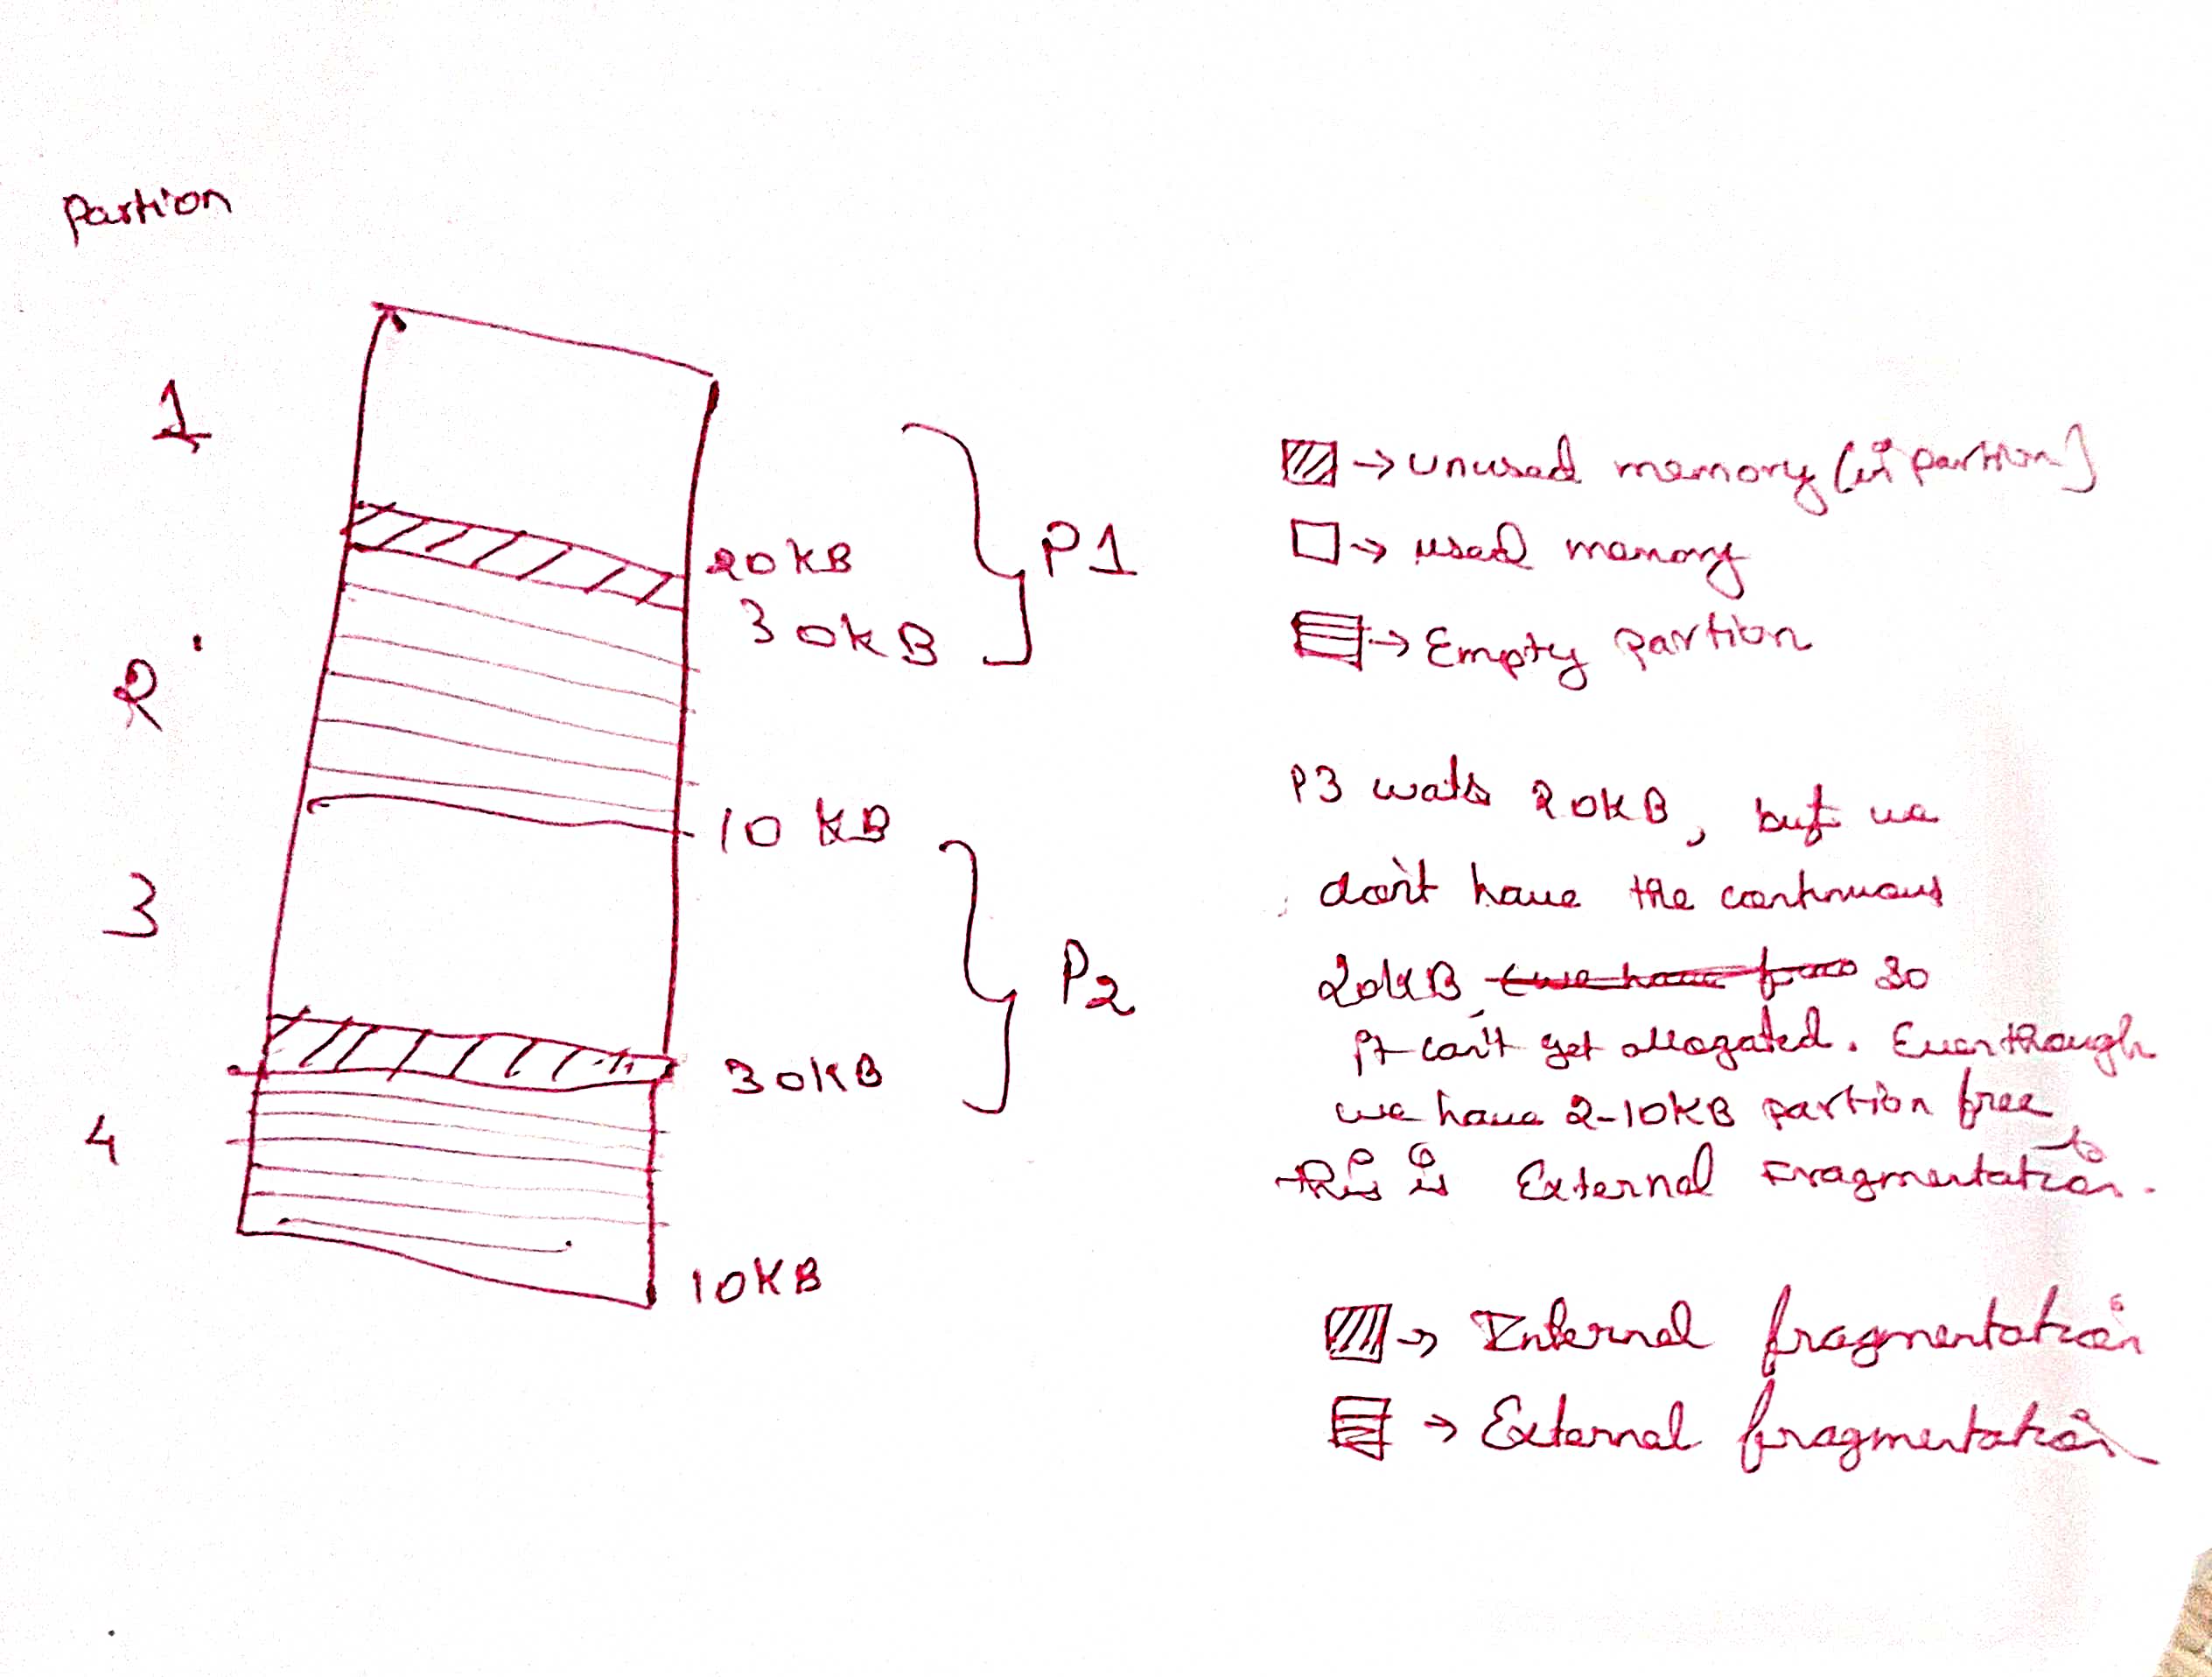 Partion
1
20KB
30KB
P1
2
10 KB
3
P2
30KB
4
10KB
→ unused memory (in partion)
→ used memory
→ Empty partion
P3 wats 20KB, but we
don't have the continuous
20KB so
it can't get allogated. Eventhough
we have 2-10KB partion free
this is External Fragmentation.
→ Internal fragmentation
→ External fragmentation